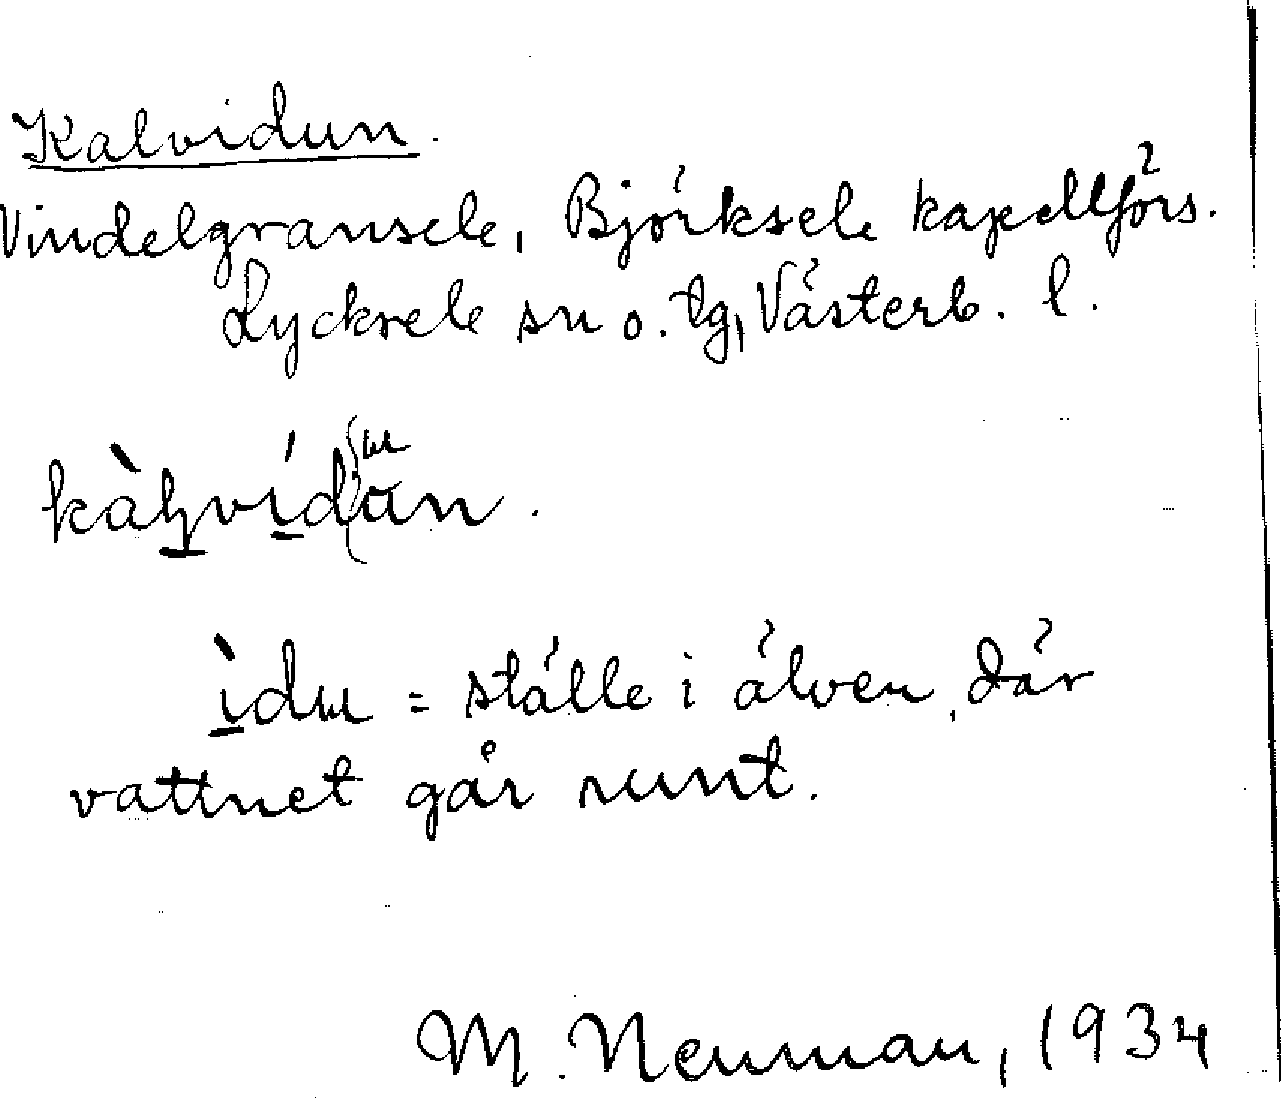 Kalvidun.
Vindelgransele, Björksele kapellförs.
Lycksele sn o. tg, Västerb. l.
ìdɯ = ställe i älven, där
vattnet går runt.
M. Neuman, 1934